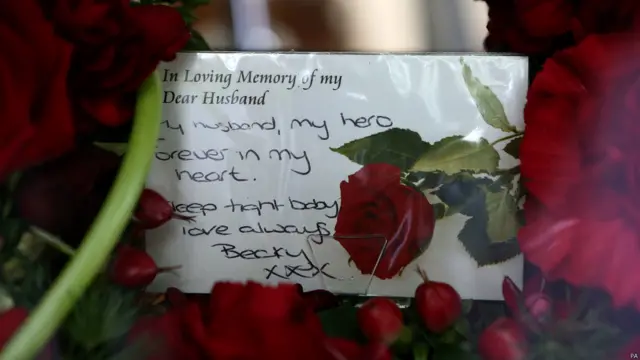 In Loving Memory of my
Dear Husband
my husband, my hero
forever in my
heart.
sleep tight baby
love always
Becky
xxx
PA